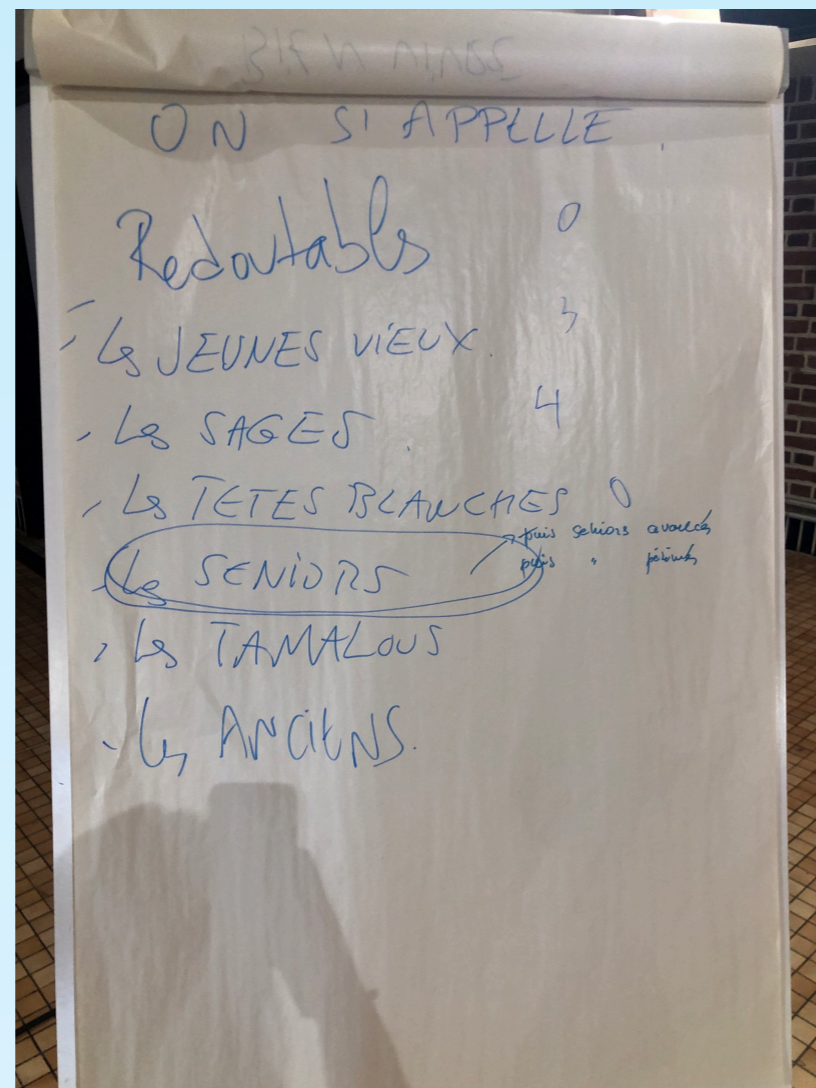 ON S'APPELLE
Redoutables 0
- Les JEUNES VIEUX. 3
- Les SAGES 4
- Les TETES BLANCHES 0
- Les SENIORS → puis seniors avancés
puis " périmés
- Les TAMALOUS
- Les ANCIENS.